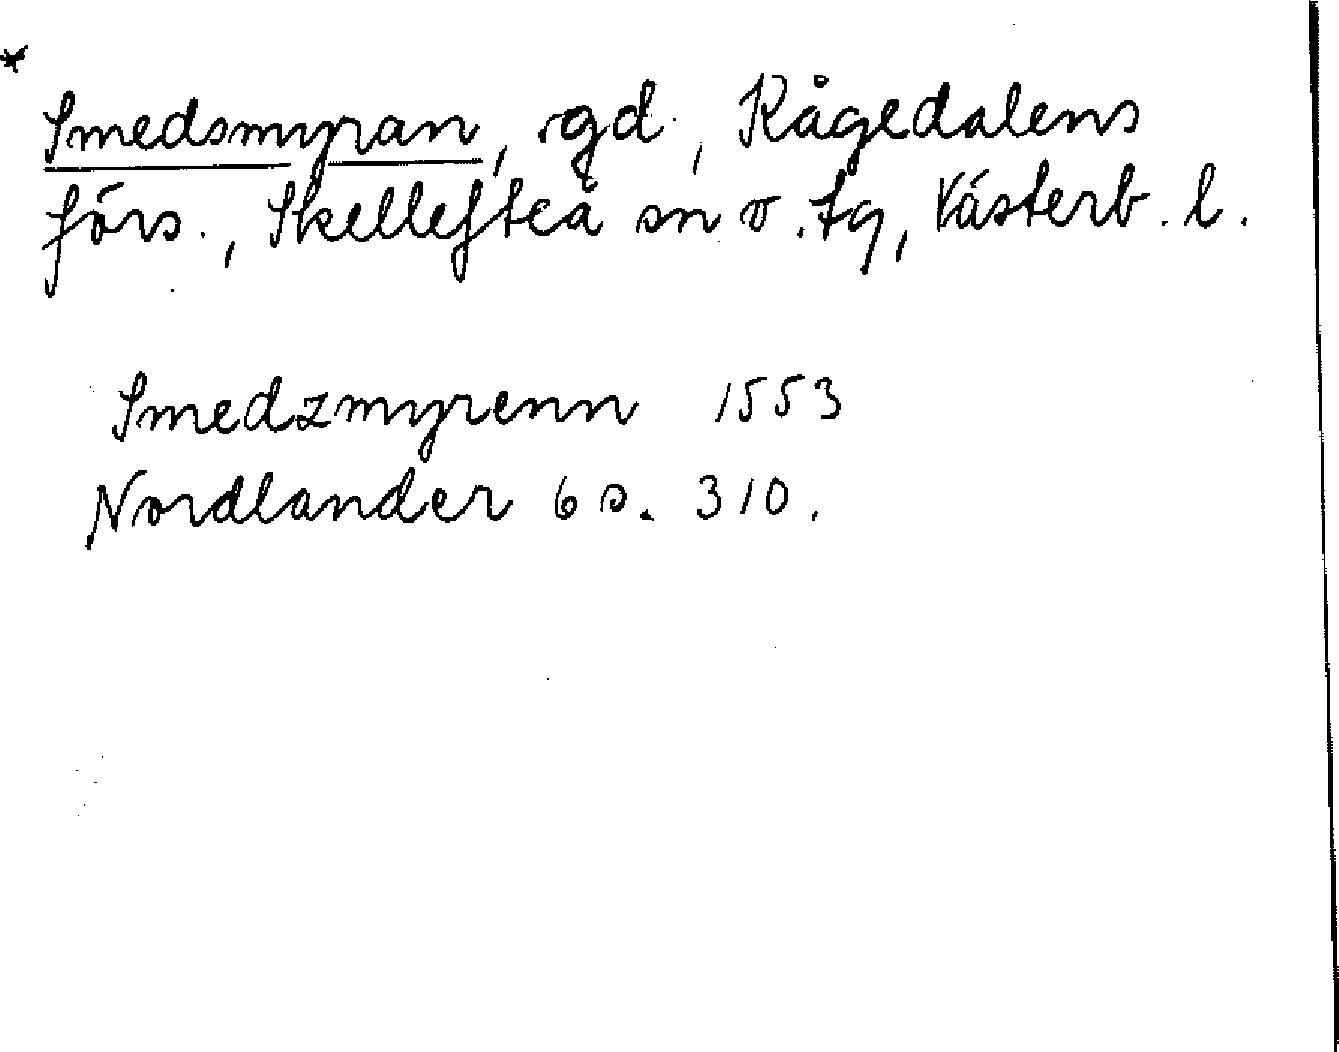 *
Smedsmyran, gd., Kågedalens
förs., Skellefteå sn o. tg, Västerb. l.
Smedzmyrenn 1553
Nordlander 6 s. 310.